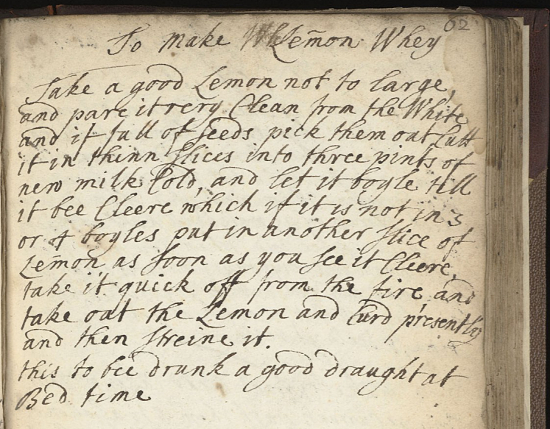 62
To make Lemon Whey
Take a good Lemon not to large,
and pare it very Clean from the White
and if full of seeds pick them out Cutt
it in thinn slices into three pints of
new milk Cold, and let it boyle till
it bee Cleere which if it is not in 3
or 4 boyles put in another slice of
Lemon as soon as you see it Cleere,
take it quick off from the fire and
take out the Lemon and Curd presently
and then streine it.
this to bee drunk a good draught at
Bed time